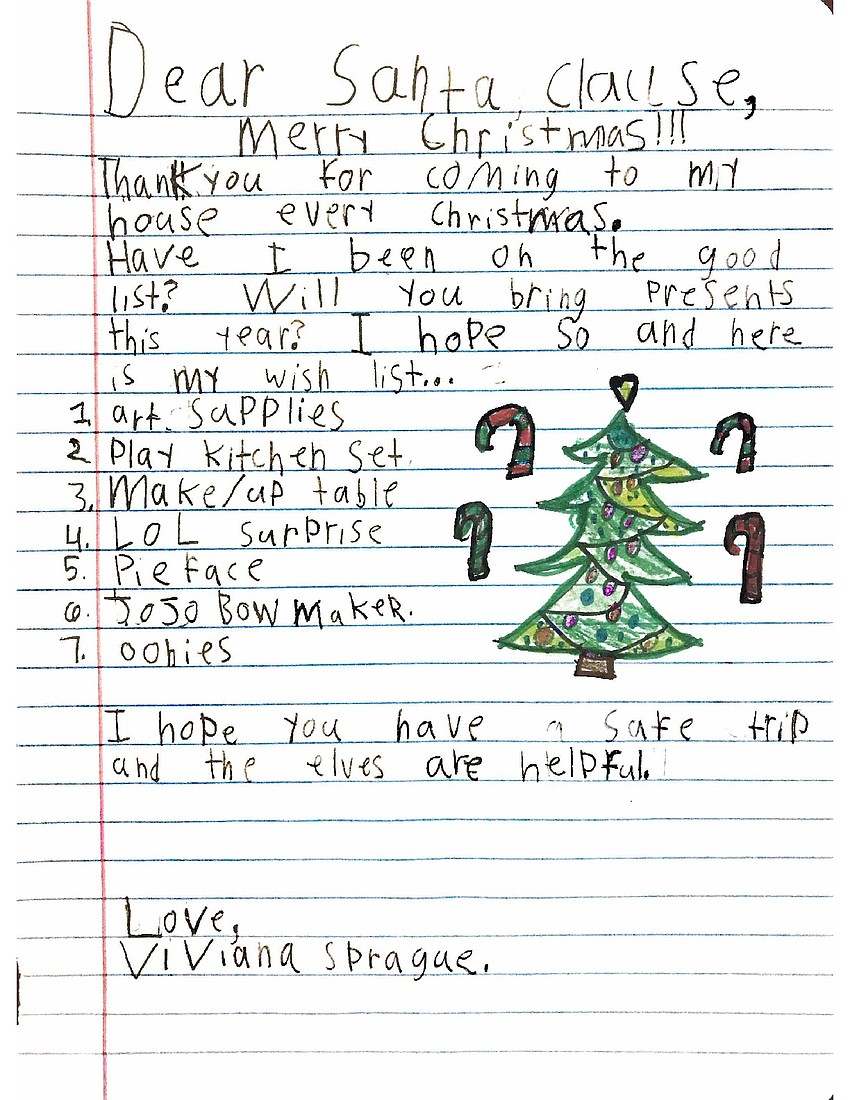 Dear Santa Clause,
Merry Christmas!!!
Thank you for coming to my
house every Christmas.
Have I been on the good
list? Will you bring presents
this year? I hope so and here
is my wish list...
1. art supplies
2 Play kitchen set.
3. Make/up table
4. LOL surprise
5. Pie Face
6. JoJo Bow maker.
7. oonies
I hope you have a safe trip
and the elves are helpful.
Love,
Viviana Sprague.